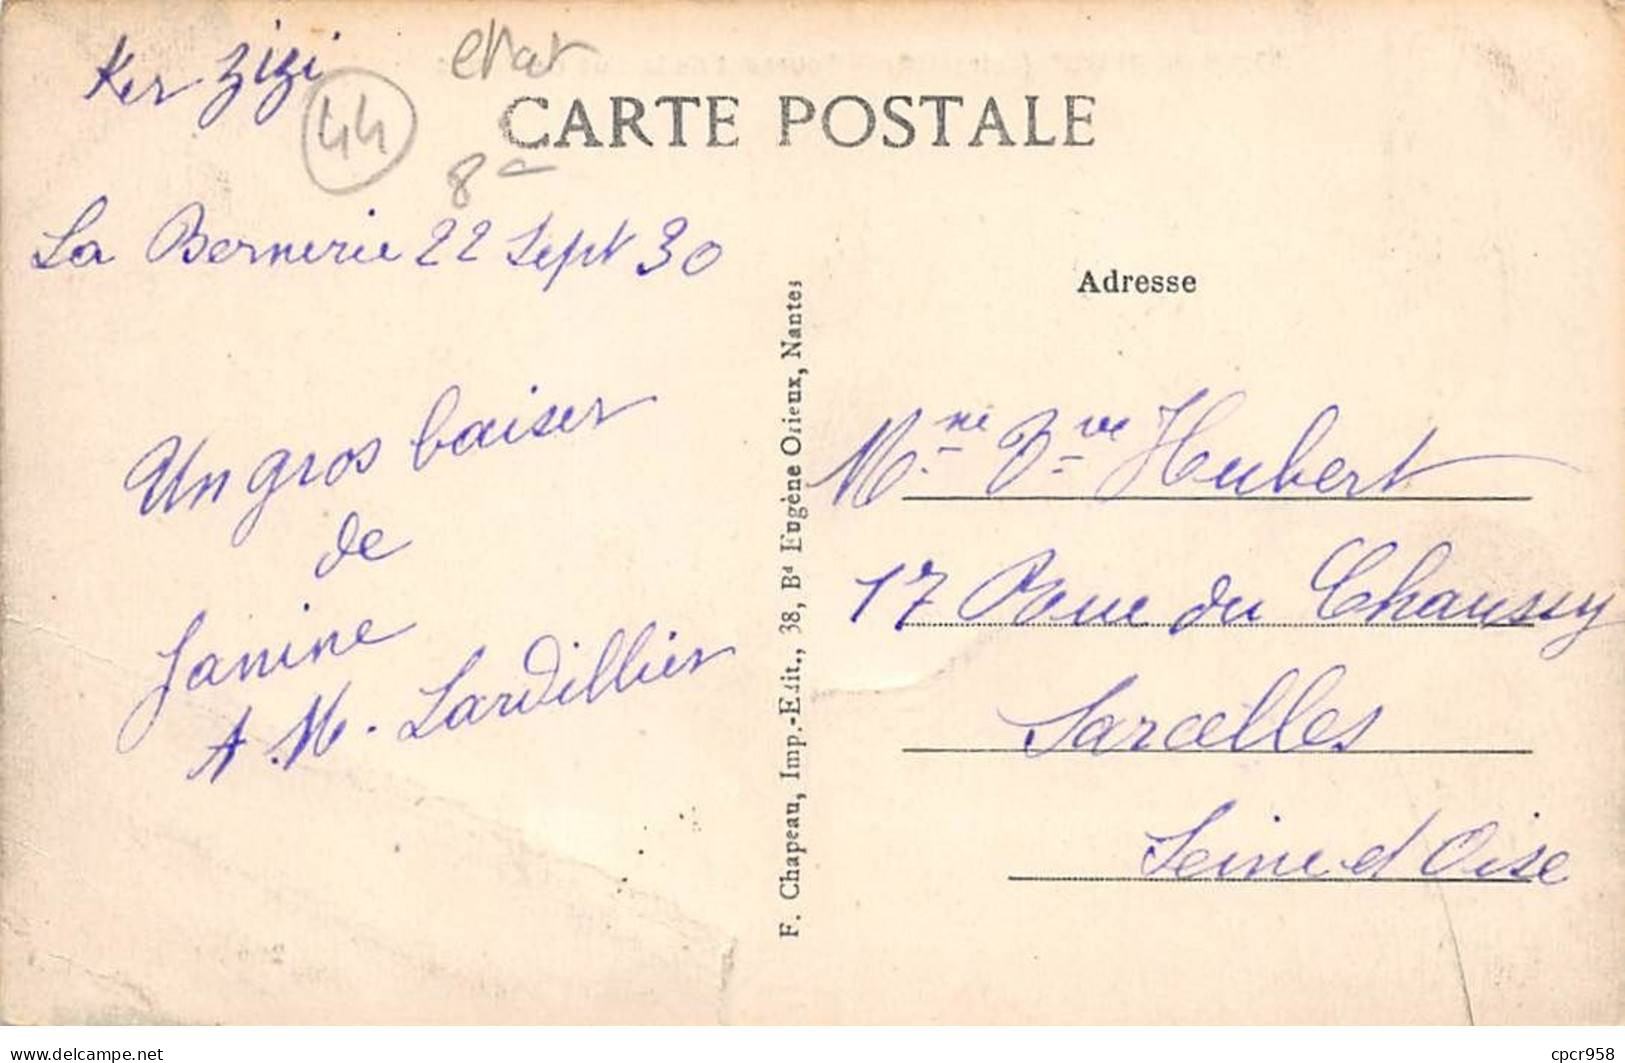 Ker Zizi
44
etat
8
CARTE POSTALE
La Bernerie 22 Sept 30
Un gros baiser
de
Janine
A. M. Lardillier
F. Chapeau, Imp.-Edit., 38, Bd Eugène Orieux, Nantes
Adresse
Mme Vve Hubert
17 Rue du Chaussy
Sarcelles
Seine et Oise
delcampe.net
cpcr958